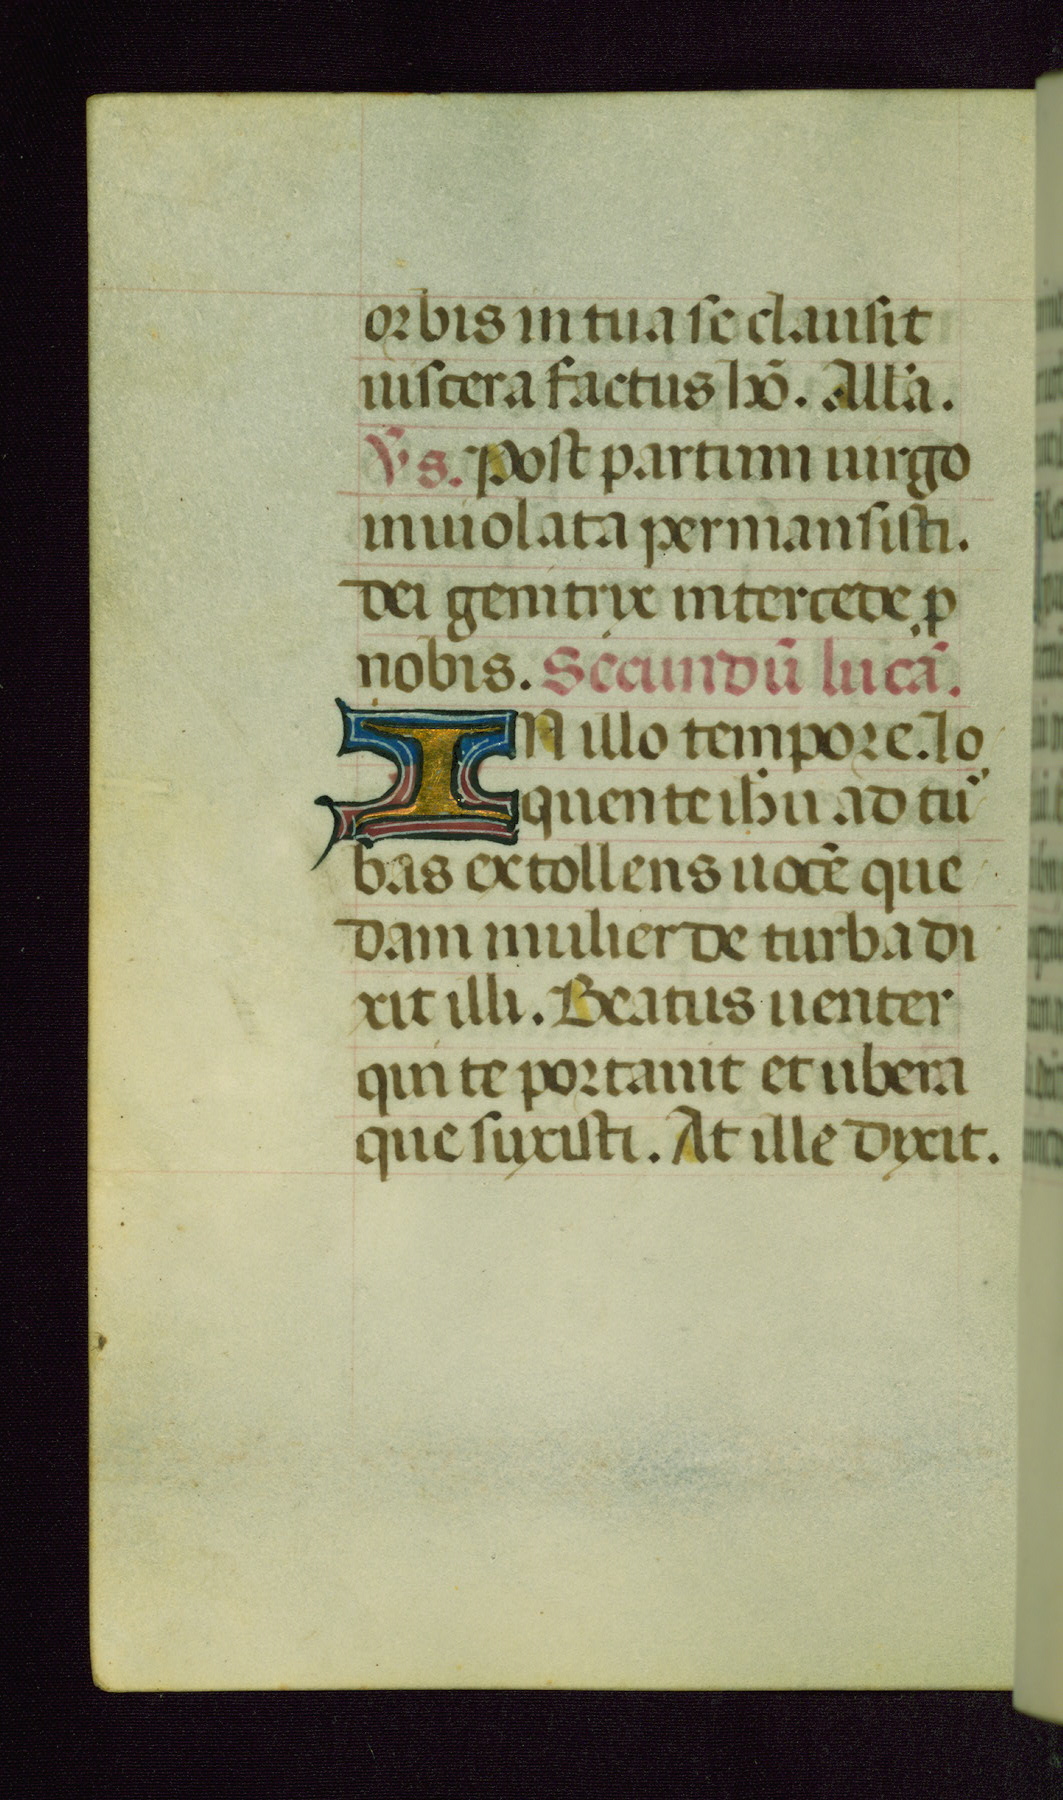 orbis in tua se clausit
uiscera factus hō. All'a.
V̄s. Post partum uirgo
inuiolata permansisti.
dei genitrix intercede p
nobis. Secundū lucā.
IN illo tempore. lo
quente ihu ad tū
bas extollens uocē que
dam mulier de turba di
xit illi. Beatus uenter
qui te portauit et ubera
que suxisti. At ille dixit.